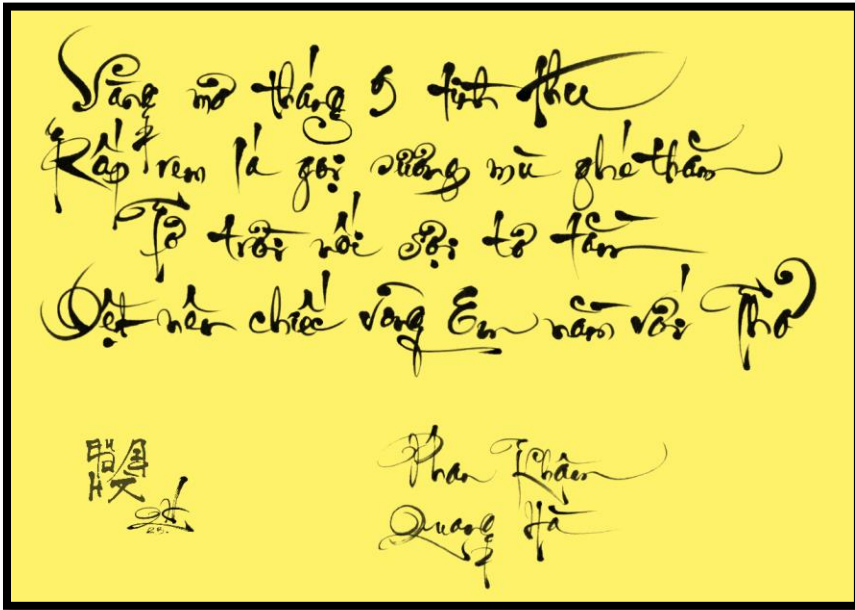 Vàng mơ tháng 9 tình thu
Rấp rem lá gọi sương mù ghé thăm
Tơ trời nối sợi tơ tằm
Dệt nên chiếc võng Em nằm với Thơ
Phan Khâm
Quang Hà